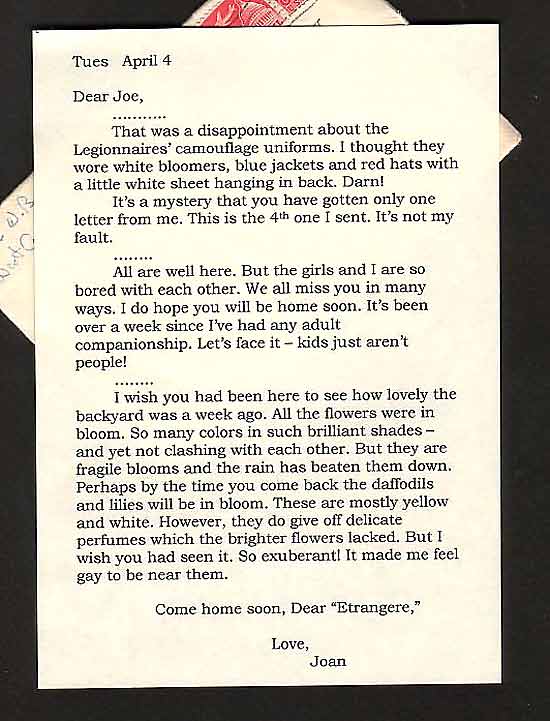 Tues April 4
Dear Joe,
...........
That was a disappointment about the
Legionnaires' camouflage uniforms. I thought they
wore white bloomers, blue jackets and red hats with
a little white sheet hanging in back. Darn!
It's a mystery that you have gotten only one
letter from me. This is the 4th one I sent. It's not my
fault.
........
All are well here. But the girls and I are so
bored with each other. We all miss you in many
ways. I do hope you will be home soon. It's been
over a week since I've had any adult
companionship. Let's face it – kids just aren't
people!
........
I wish you had been here to see how lovely the
backyard was a week ago. All the flowers were in
bloom. So many colors in such brilliant shades –
and yet not clashing with each other. But they are
fragile blooms and the rain has beaten them down.
Perhaps by the time you come back the daffodils
and lilies will be in bloom. These are mostly yellow
and white. However, they do give off delicate
perfumes which the brighter flowers lacked. But I
wish you had seen it. So exuberant! It made me feel
gay to be near them.
Come home soon, Dear "Etrangere,"
Love,
Joan